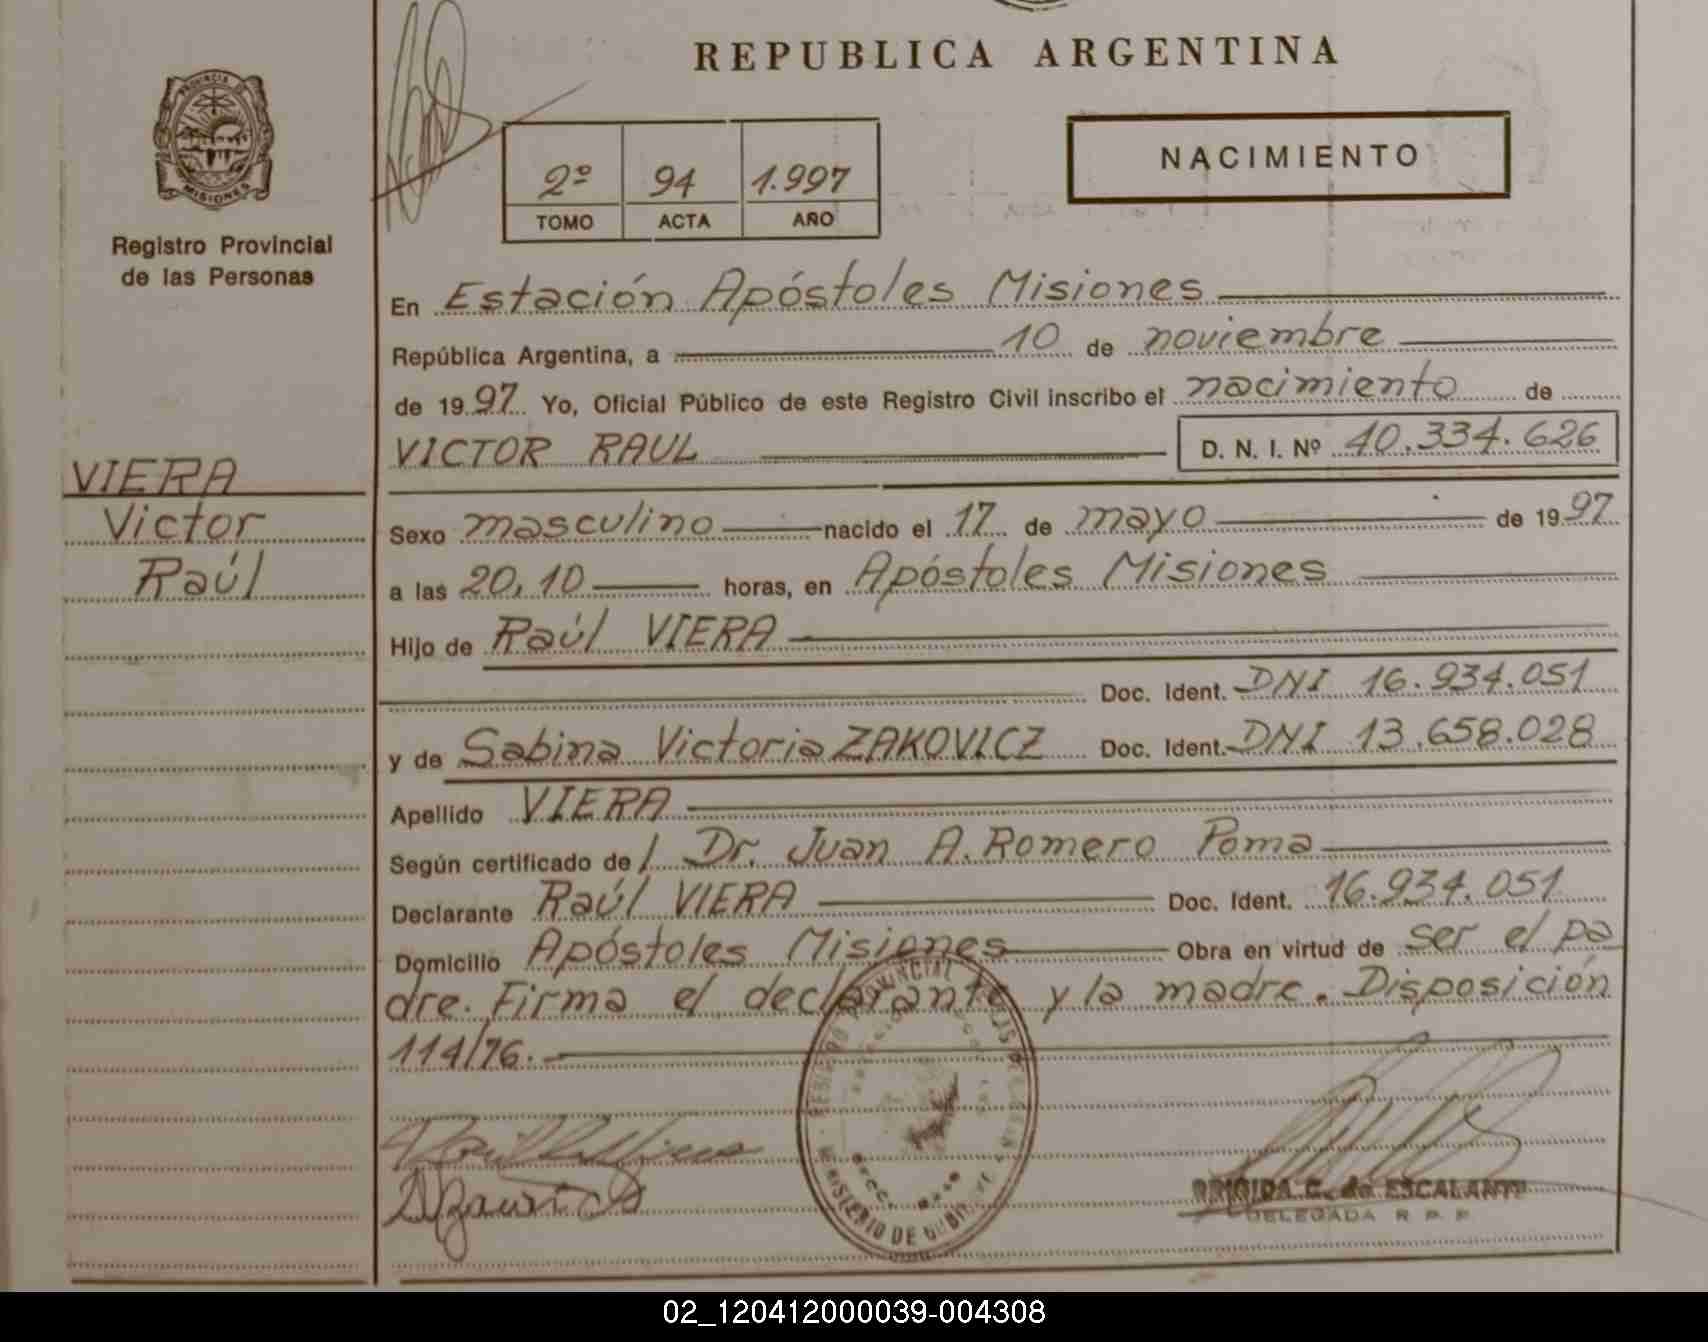 REPUBLICA ARGENTINA
PROVINCIA DE
MISIONES
Registro Provincial
de las Personas
2º 94 1.997
TOMO ACTA AÑO
NACIMIENTO
En Estación Apóstoles Misiones
República Argentina, a 10 de noviembre
de 1997 Yo, Oficial Público de este Registro Civil inscribo el nacimiento de
VICTOR RAUL D. N. I. Nº 40.334.626
VIERA
Victor
Raúl
Sexo masculino nacido el 17 de mayo de 1997
a las 20,10 horas, en Apóstoles Misiones
Hijo de Raúl VIERA
Doc. Ident. DNI 16.934.051
y de Sabina Victoria ZAKOVICZ Doc. Ident. DNI 13.658.028
Apellido VIERA
Según certificado de Dr. Juan A. Romero Poma
Declarante Raúl VIERA Doc. Ident. 16.934.051
Domicilio Apóstoles Misiones Obra en virtud de ser el pa
dre. Firma el declarante y la madre. Disposición
114/76.
REGISTRO PROVINCIAL DE LAS PERSONAS
MINISTERIO DE GOBIERNO
BRIGIDA C. de ESCALANTE
DELEGADA R. P. P.
02_120412000039-004308